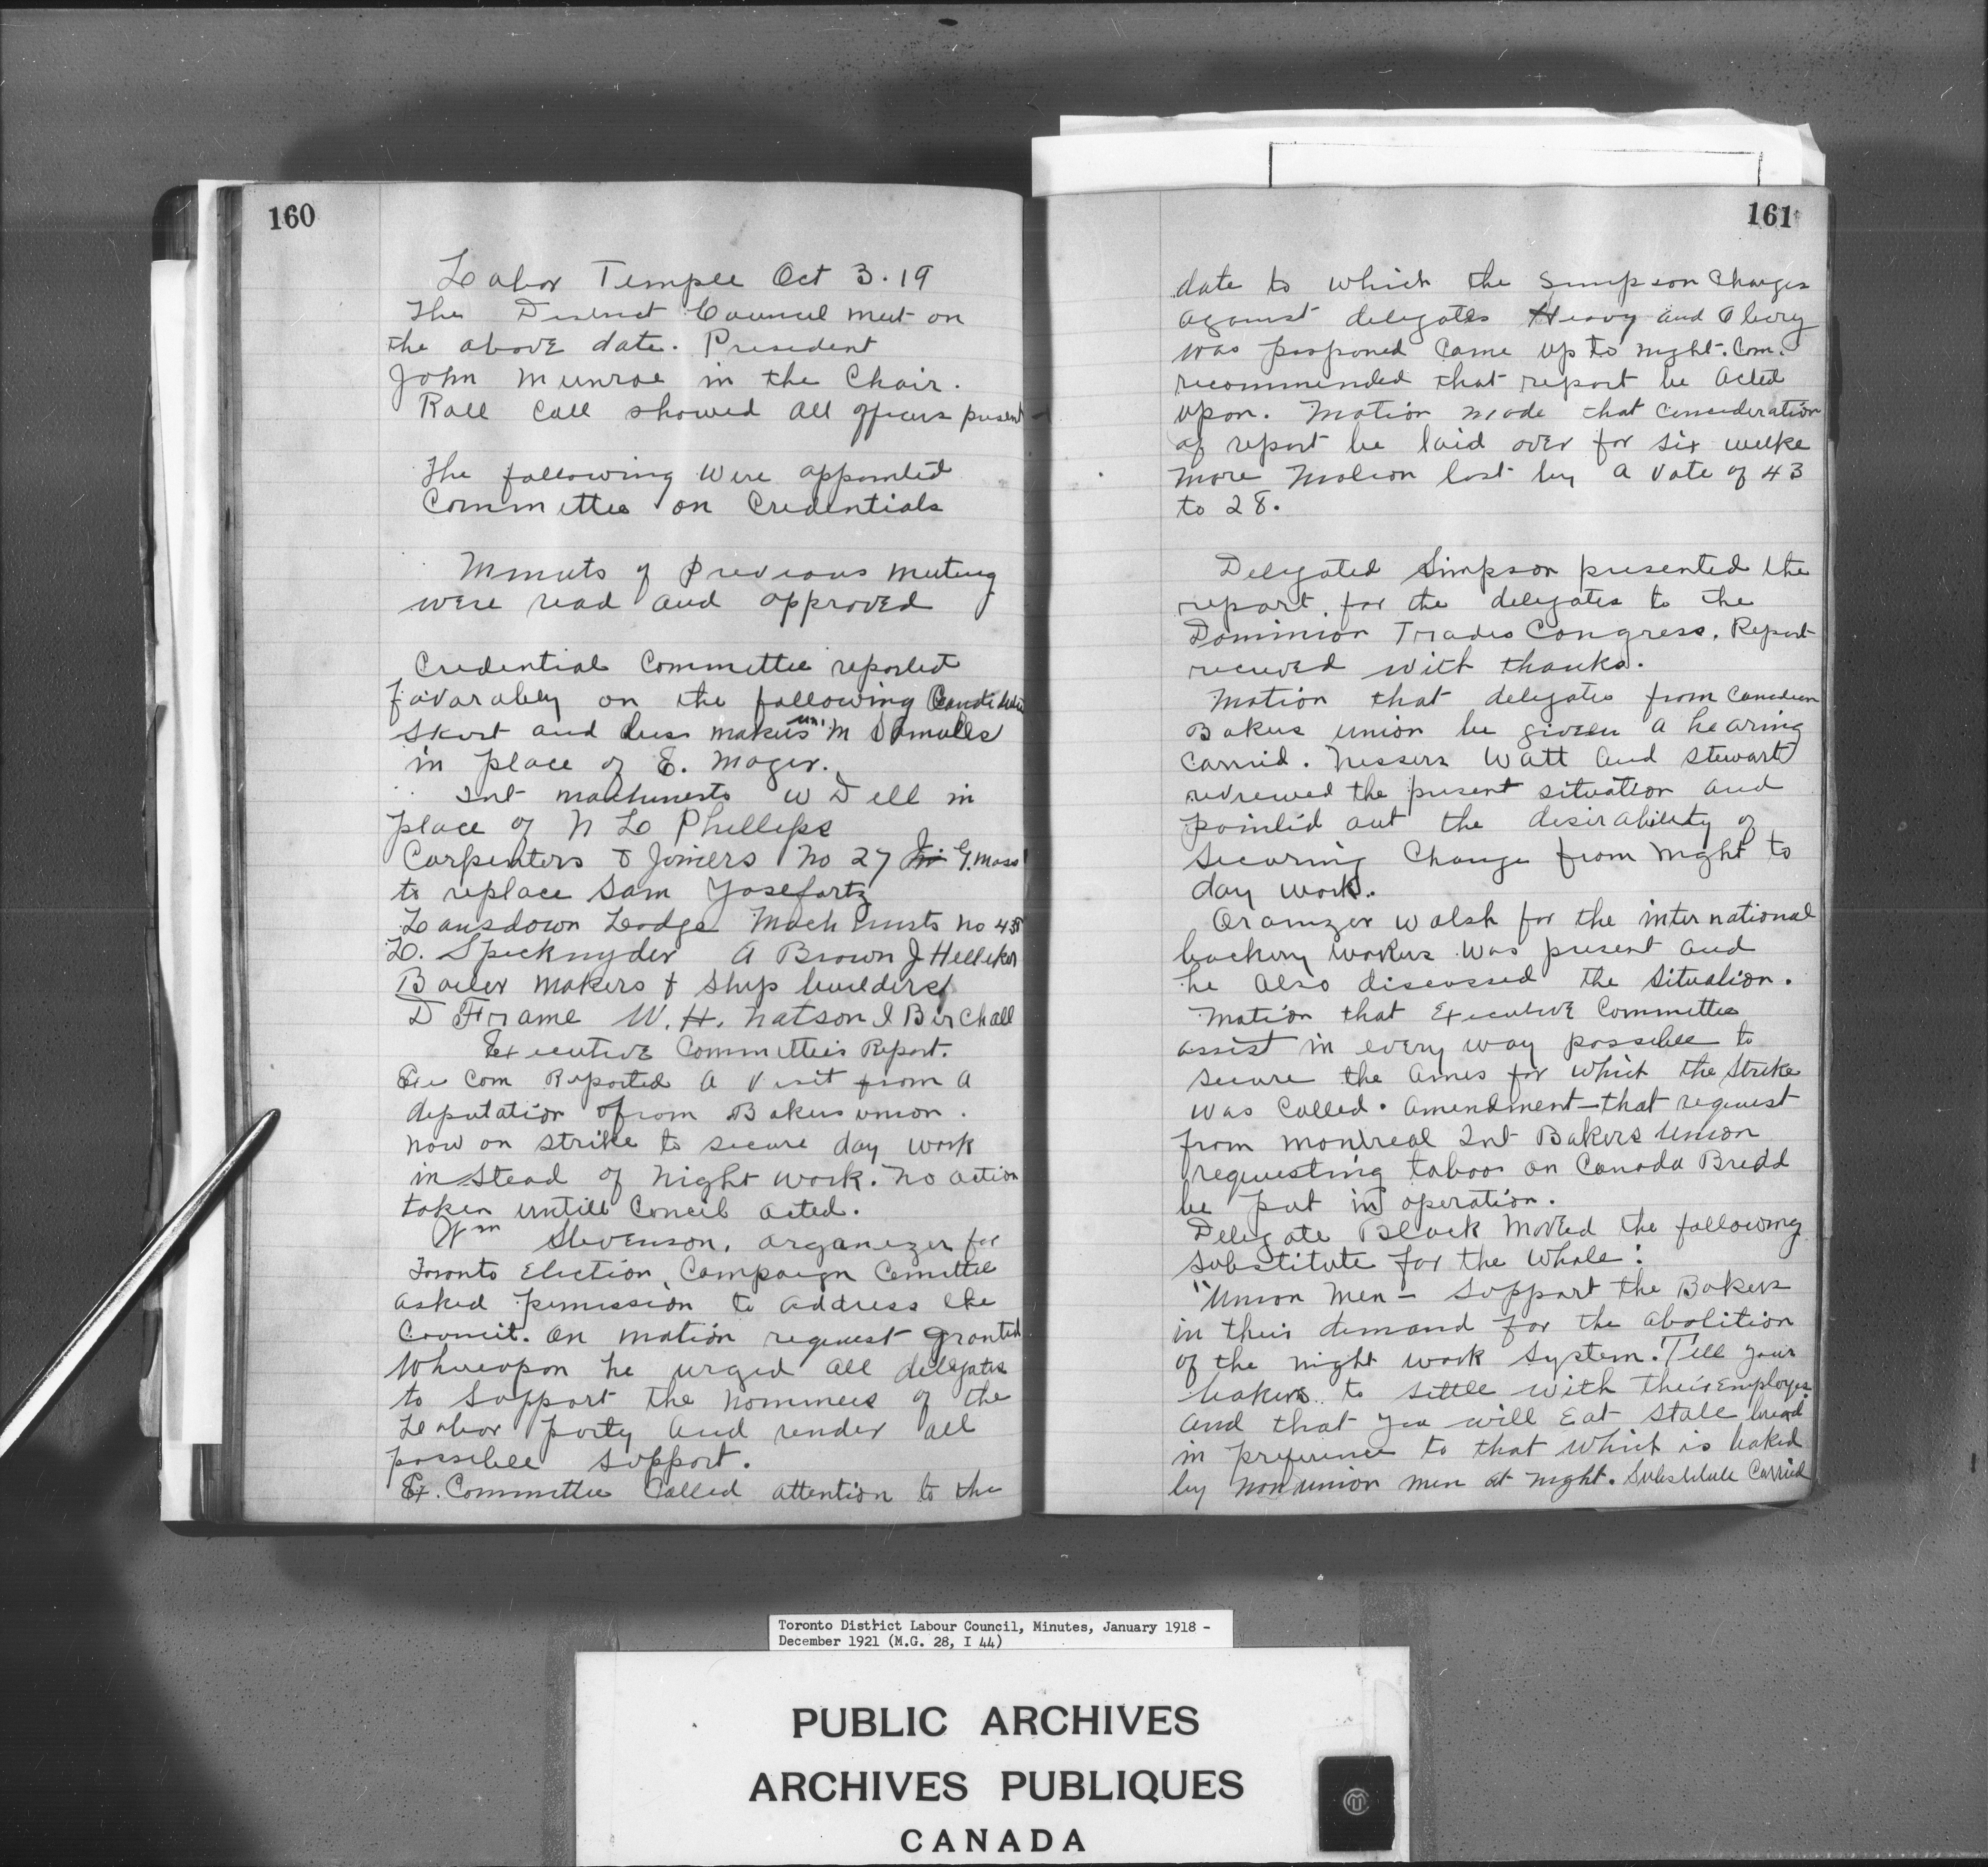 160
Labor Temple Oct 3.19
The District Council met on
the above date. President
John Munroe in the Chair.
Roll Call showed all officers present
The following were appointed
Committee on Credentials
Minuts of previous meeting
were read and approved
Credential Committee reported
favorabley on the following
Skirt and dress makers un. M
in place of E. Mager.
Int machinests W Dell in
place of N L Phelleps
Carpenters & Joiners No 27 G. Moss
to replace Sam Yosefartz
Lansdown Lodge Machinists No 435
L. Specknyder A Brown J Helleker
Boiler makers & Ship builders
D Frame W. H. Natson J Birchall
Executive Committee's Report.
Exe Com Reported a visit from a
deputation from Bakers union.
now on strike to secure day work
in stead of night work. No action
taken untill Concil acted.
Wm Stevenson, organizer for
Toronto Election Campaign Comittee
asked permission to address the
Council. On motion request granted
Whereupon he urged all delegates
to support the nominees of the
Labor party and render all
possible support.
Ex. Committee called attention to the
161
date to which the Simpson Charges
against delegates Heavy and
was posponed came up to night. Com.
recommended that report be acted
upon. Motion made that consideration
of report be laid over for six weeks
more Motion lost by a vote of 43
to 28.
Delegated Simpson presented the
report for the delegates to the
Dominion Trades Congress. Report
recieved with thanks.
Motion that delegates from Canadian
Bakers union be given a hearing
carried. Messers Watt and Stewart
reviewed the present situation and
pointed out the desirability of
securing change from night to
day work.
Oranizer Walsh for the international
backery workers was present and
he also discussed the situation.
Motion that Executive Committee
assist in every way possible to
secure the aimes for which the strike
was called. amendment that request
from Montreal Int Bakers Union
requesting taboo on Canada Bread
be put in operation.
Delegate Black moved the following
substitute for the whole:
"Union Men - Support the Bakers
in their demand for the abolition
of the night work system. Tell your
bakers to settle with their employes
and that you will eat stale bread
in preference to that which is baked
by non union men at night. Substitute Carried
Toronto District Labour Council, Minutes, January 1918 -
December 1921 (M.G. 28, I 44)
PUBLIC ARCHIVES
ARCHIVES PUBLIQUES
CANADA